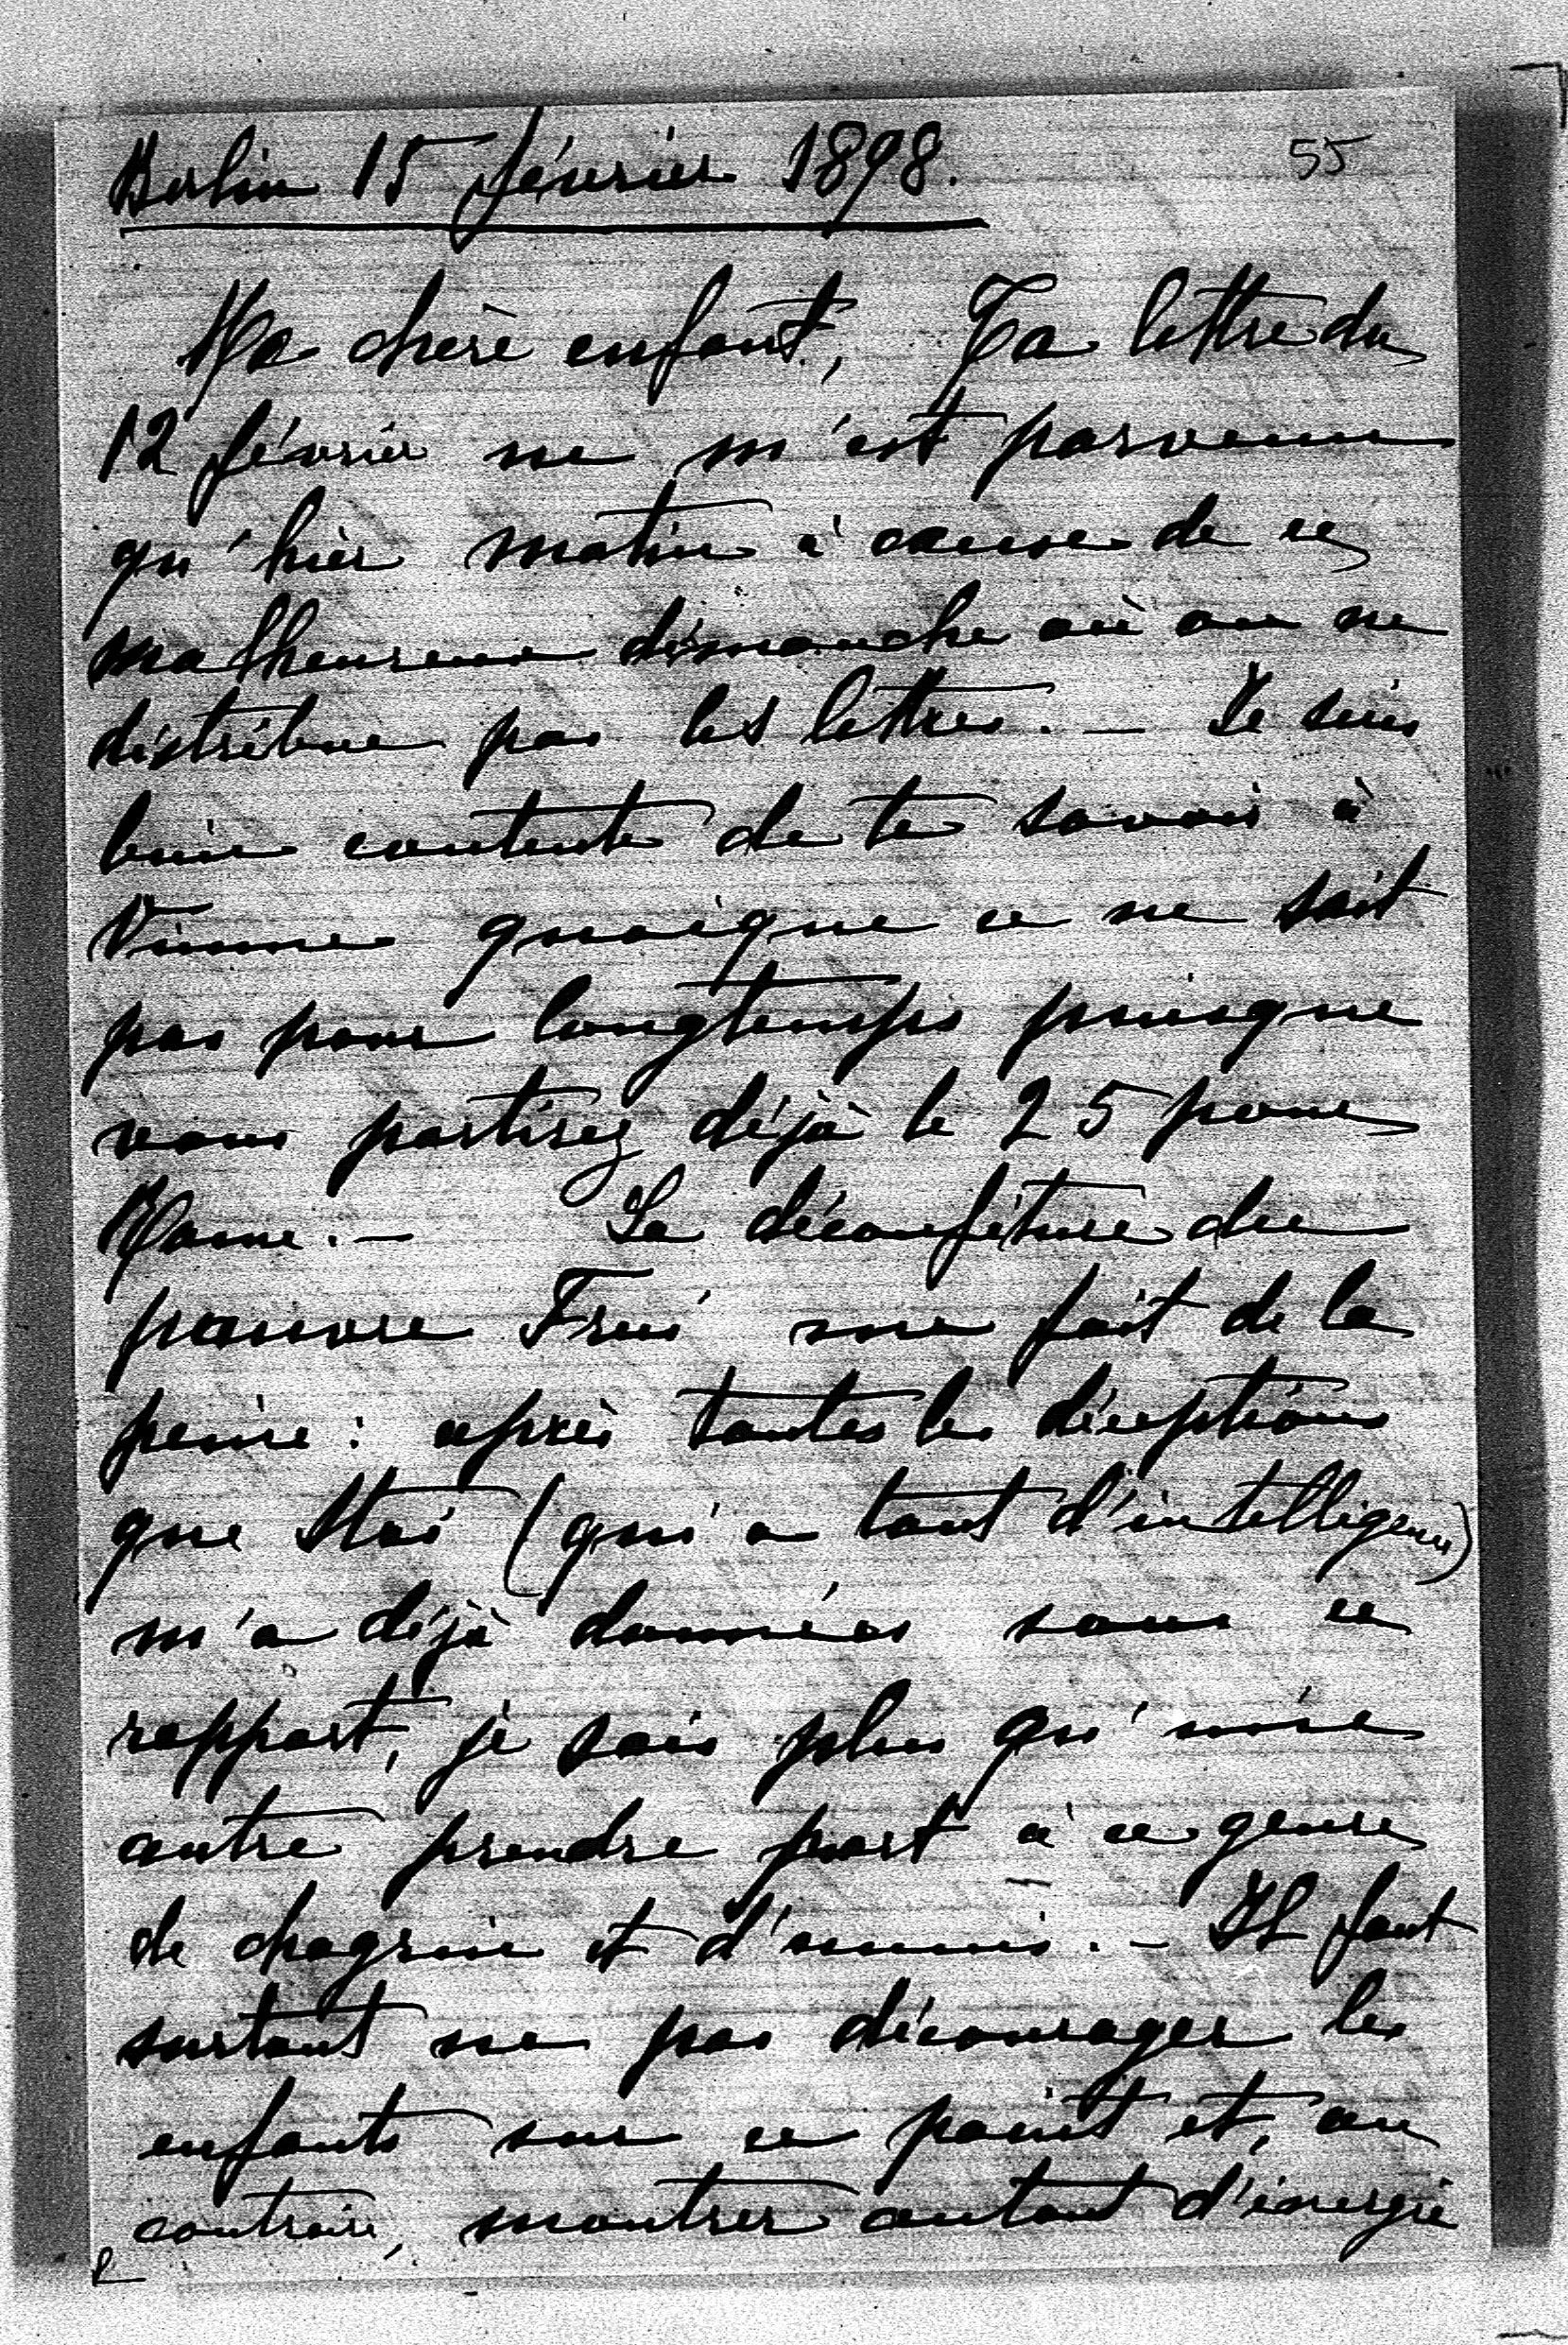 Berlin 15 février 1898.
55
Ma chère enfant, Ta lettre du
12 février ne m'est parvenue
qu'hier matin à cause de ce
malheureux dimanche où on ne
distribue pas les lettres. — Je suis
bien contente de te savoir à
Vienne quoique ce ne soit
pas pour longtemps puisque
vous partirez déjà le 25 pour
Rome. — La déconfiture du
pauvre me fait de la
peine : après toutes les déceptions
que (qui a tant d'intelligence)
m'a déjà données sous ce
rapport, je sais plus qu'une
autre prendre part à ce genre
de chagrin et d'ennui. — Il faut
surtout ne pas décourager les
enfants sur ce point et, au
contraire, montrer autant d'énergie